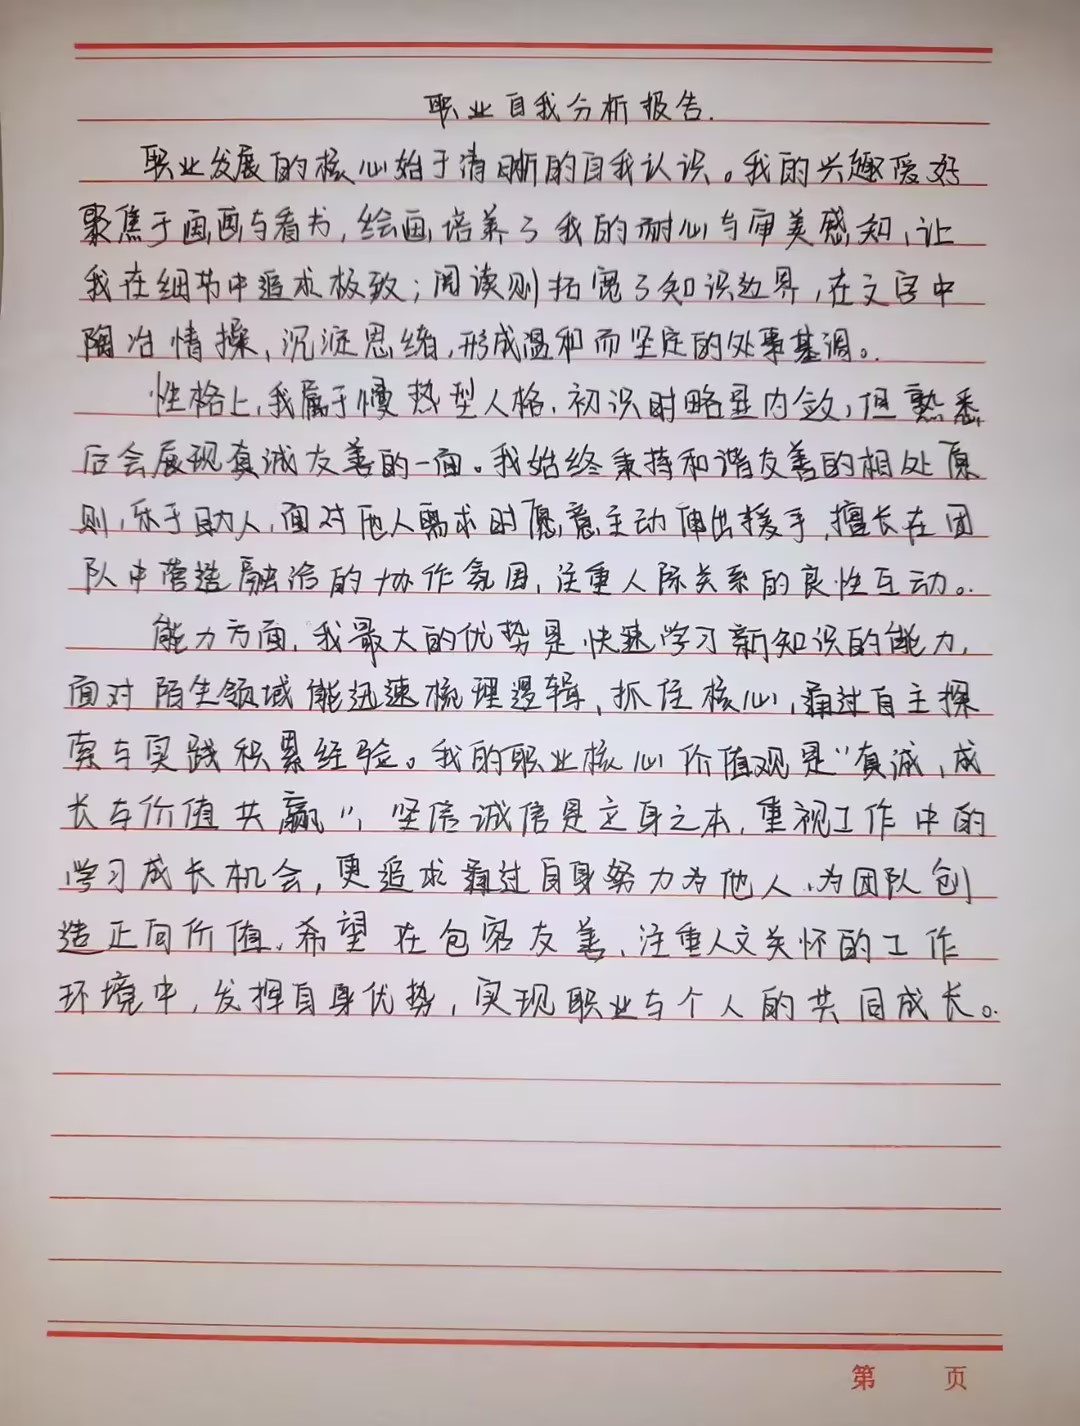 职业自我分析报告.
职业发展的核心始于清晰的自我认识。我的兴趣爱好
聚焦于画画与看书,绘画培养了我的耐心与审美感知,让
我在细节中追求极致;阅读则拓宽了知识边界,在文字中
陶冶情操,沉淀思绪,形成温和而坚定的处事基调。
性格上,我属于慢热型人格,初识时略显内敛,但熟悉
后会展现真诚友善的一面。我始终秉持和谐友善的相处原
则,乐于助人,面对他人需求时愿意主动伸出援手,擅长在团
队中营造融洽的协作氛围,注重人际关系的良性互动。
能力方面,我最大的优势是快速学习新知识的能力,
面对陌生领域能迅速梳理逻辑、抓住核心,通过自主探
索与实践积累经验。我的职业核心价值观是“真诚,成
长与价值共赢”,坚信诚信是立身之本,重视工作中的
学习成长机会,更追求通过自身努力为他人、为团队创
造正向价值,希望在包容友善、注重人文关怀的工作
环境中,发挥自身优势,实现职业与个人的共同成长。
第 页